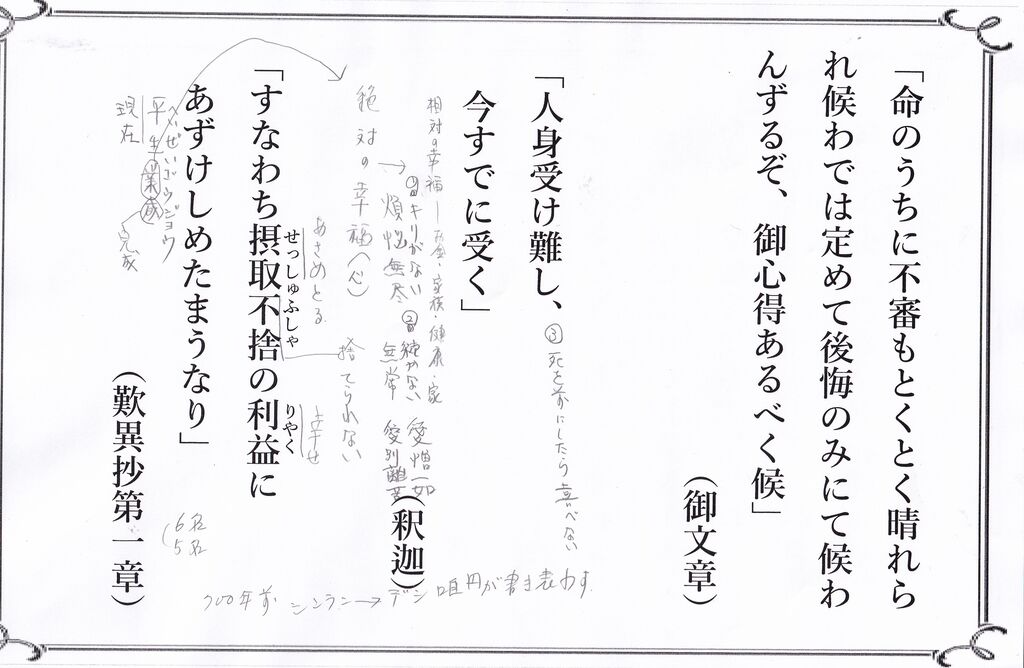 「命のうちに不審もとくとく晴れら
れ候わでは定めて後悔のみにて候わ
んずるぞ、御心得あるべく候」
(御文章)
「人身受け難し、
今すでに受く」
(釈迦)
③死を前にしたら喜べない
相対の幸福―お金・家族・健康・家
①キリがない ②続かない 愛憎一如
煩悩無尽 無常 愛別離苦
絶対の幸福(心)
捨てられない
おさめとる
幸せ
「すなわち摂取不捨の利益に
せっしゅふしゃ
りやく
あずけしめたまうなり」
(歎異抄第一章)
へいぜいごうじょう
平生業成
現在
完成
6名
5名
700年前 シンラン→デシ 唯円が書き表わす